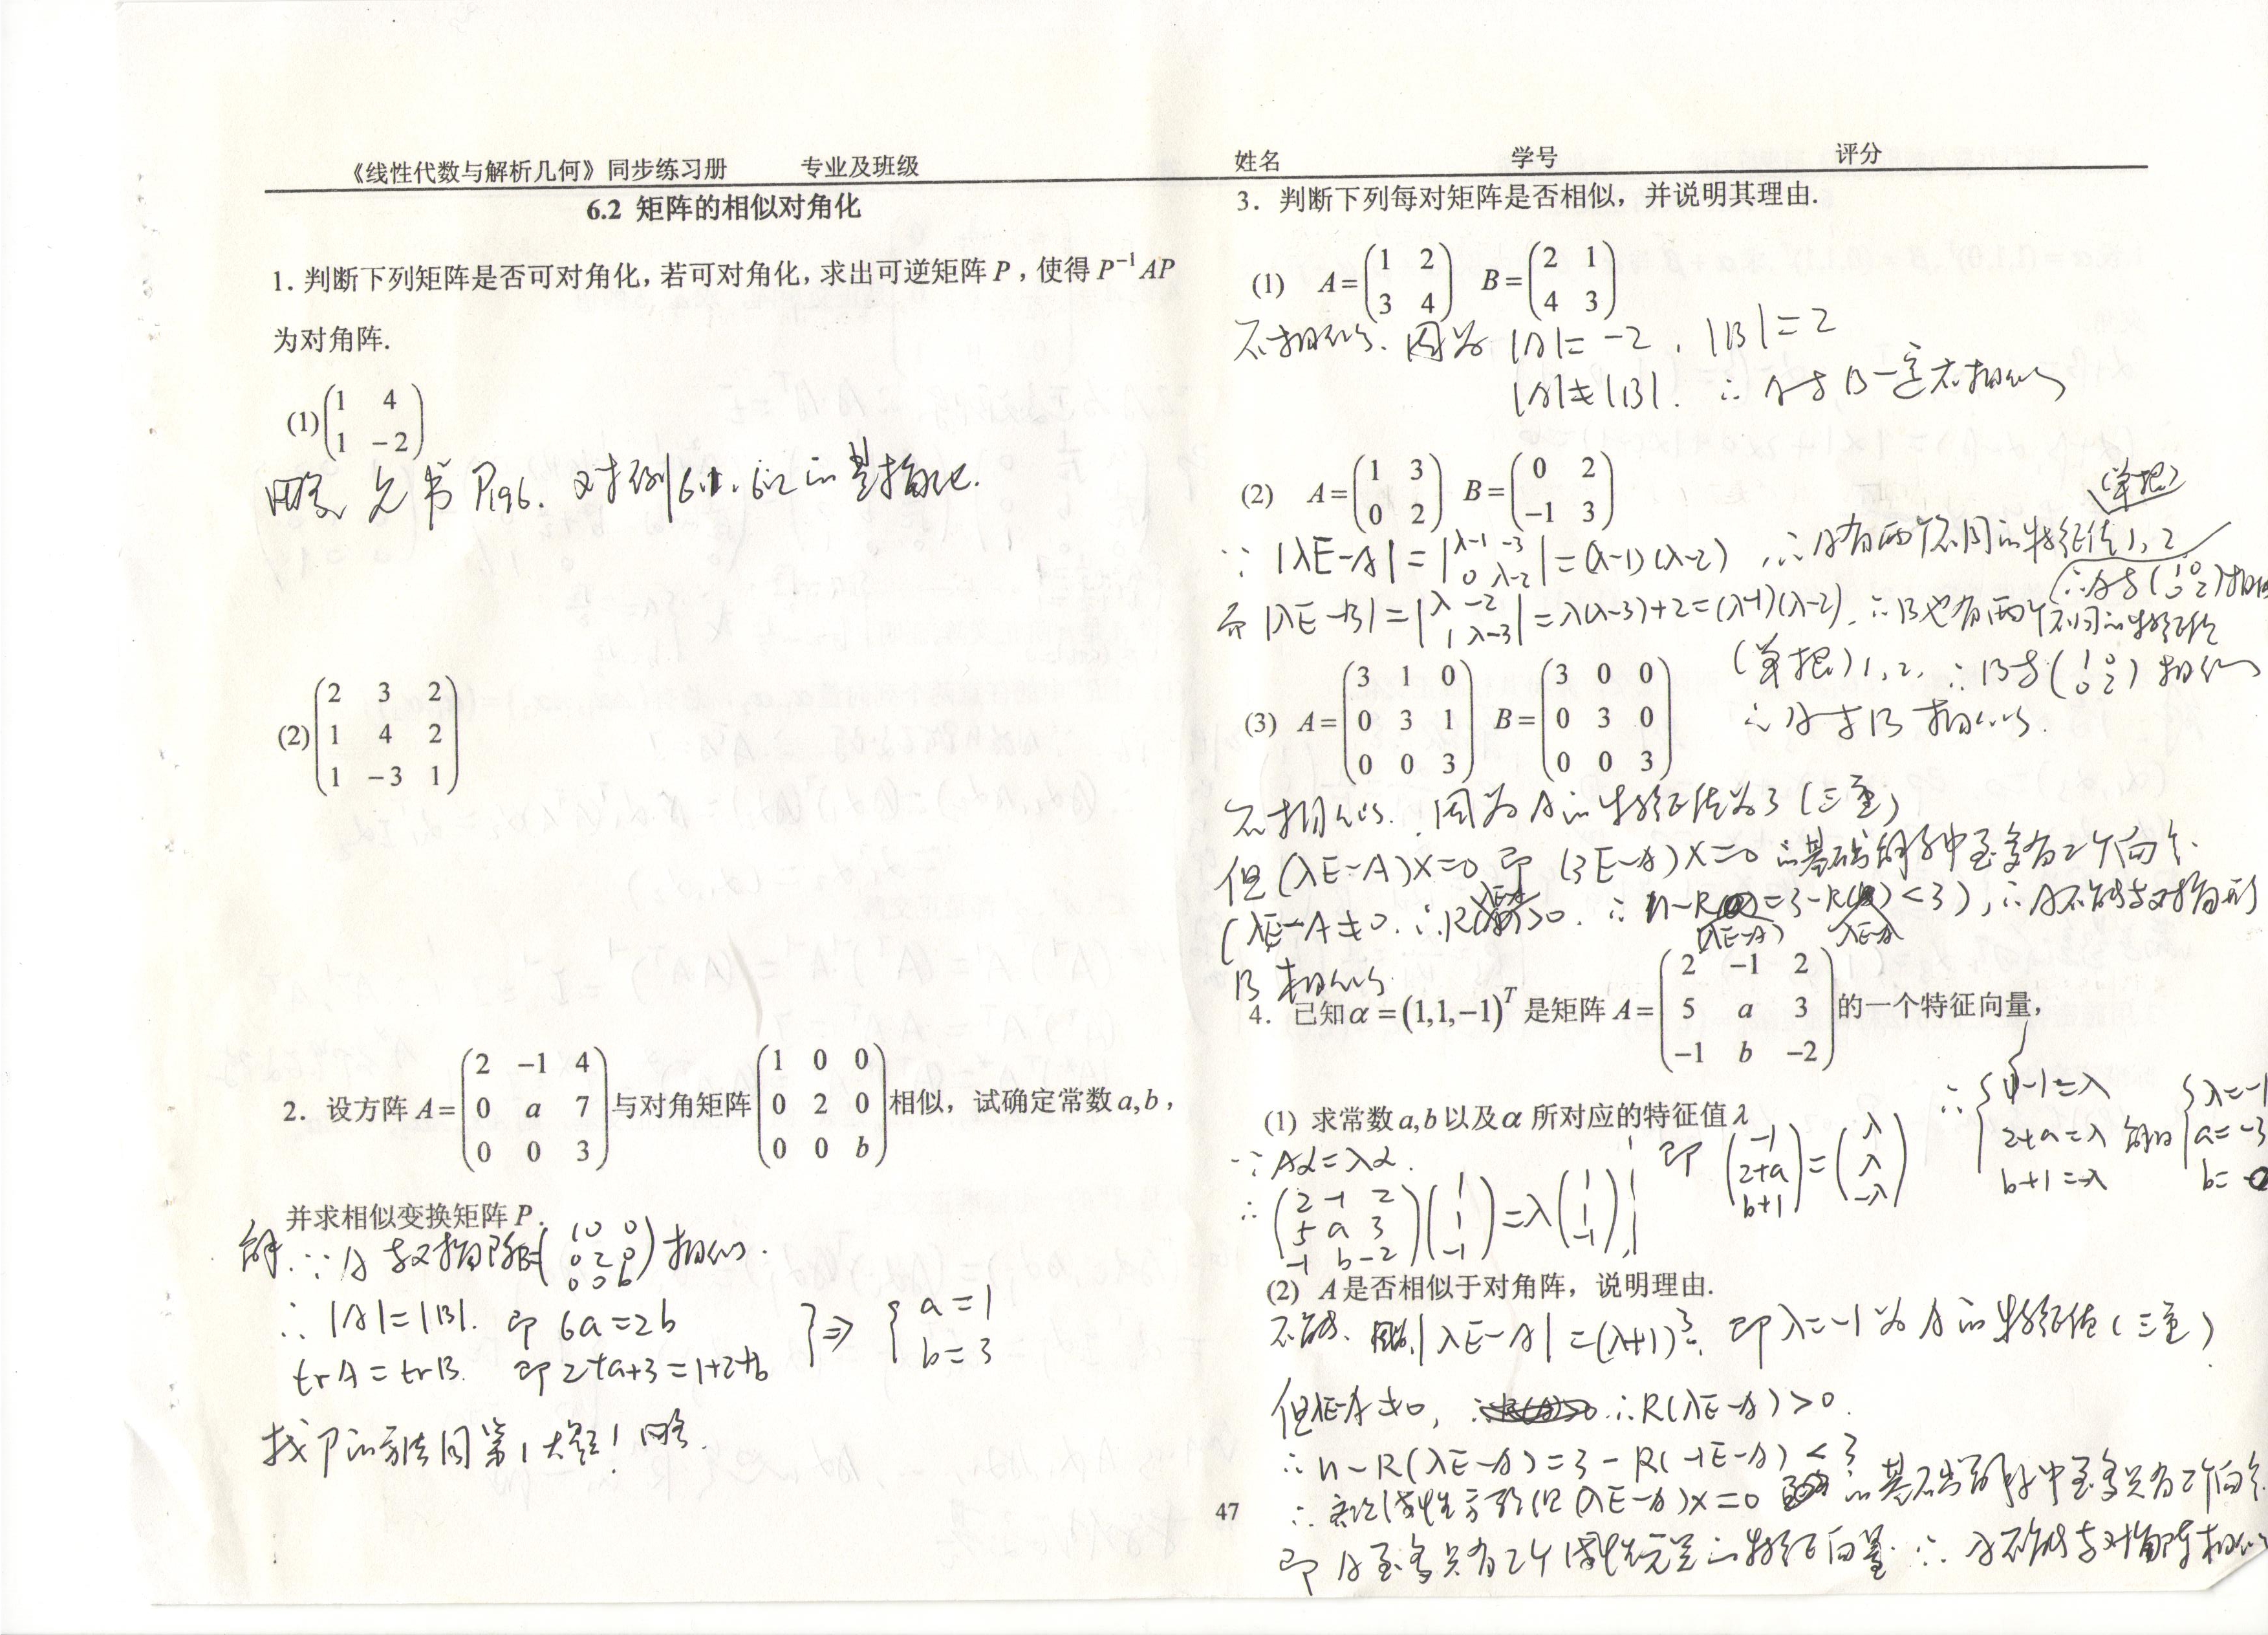 《线性代数与解析几何》同步练习册 专业及班级 姓名 学号 评分
6.2 矩阵的相似对角化
1. 判断下列矩阵是否可对角化, 若可对角化, 求出可逆矩阵 P , 使得 P⁻¹AP
为对角阵.
(1) (1 4
1 −2)
略, 见书 P196. 对例6.1. 6.2
(2) (2 3 2
1 4 2
1 −3 1)
2. 设方阵 A= (2 −1 4
0 a 7
0 0 3) 与对角矩阵 (1 0 0
0 2 0
0 0 b) 相似，试确定常数 a,b ,
并求相似变换矩阵 P .
解 ∵ A 与对角阵 (1 0 0
0 2 0
0 0 b) 相似.
∴ |A|=|B|. 即 6a=2b
trA=trB. 即 2+a+3=1+2+b
} ⇒ { a=1
b=3
找P的方法同第1大题! 略.
3. 判断下列每对矩阵是否相似，并说明其理由.
(1) A= (1 2
3 4) B= (2 1
4 3)
不相似. 因为 |A|= −2 , |B|=2
|A|≠|B|. ∴ A与B一定不相似
(2) A= (1 3
0 2) B= (0 2
−1 3)
(单根)
∵ |λE−A| = |λ−1 −3
0 λ−2| =(λ−1)(λ−2) , ∴ A有两个不同的特征值1, 2
∴A与(1 0
0 2)相似
而 |λE−B| = |λ −2
1 λ−3| =λ(λ−3)+2=(λ−1)(λ−2). ∴B也有两个不同的特征值
(单根) 1, 2, ∴ B与(1 0
0 2) 相似
∴ A与B 相似.
(3) A= (3 1 0
0 3 1
0 0 3) B= (3 0 0
0 3 0
0 0 3)
不相似. 因为 A的特征值为3 (三重)
但 (λE−A)X=0 即 (3E−A)X=0 的基础解系中至多有2个向量.
(λE−A≠0. ∴R(λE−A)>0. ∴ n−R(λE−A)=3−R(λE−A)<3), ∴ A不能与对角形
B 相似
4. 已知 α=(1,1,−1)ᵀ 是矩阵 A= (2 −1 2
5 a 3
−1 b −2) 的一个特征向量，
(1) 求常数 a,b 以及 α 所对应的特征值 λ
∵ Aα=λα.
∴ (2 −1 2
5 a 3
−1 b −2) (1
1
−1) =λ (1
1
−1) ,
即 (−1
2+a
b+1) = (λ
λ
−λ)
∴ { −1=λ
2+a=λ
b+1=−λ 解得 { λ=−1
a=−3
b=0
(2) A 是否相似于对角阵，说明理由.
不能. |λE−A| =(λ+1)³. 即 λ=−1 为 A 的特征值 (三重)
但λE−A≠0, ∴R(λE−A)>0.
∴ n−R(λE−A)=3−R(−1E−A) < 3
∴ 齐次线性方程组 (λE−A)x=0 的基础解系中至多只有2个向量.
即 A 至多只有2个线性无关的特征向量. ∴ A不能与对角阵相似
47